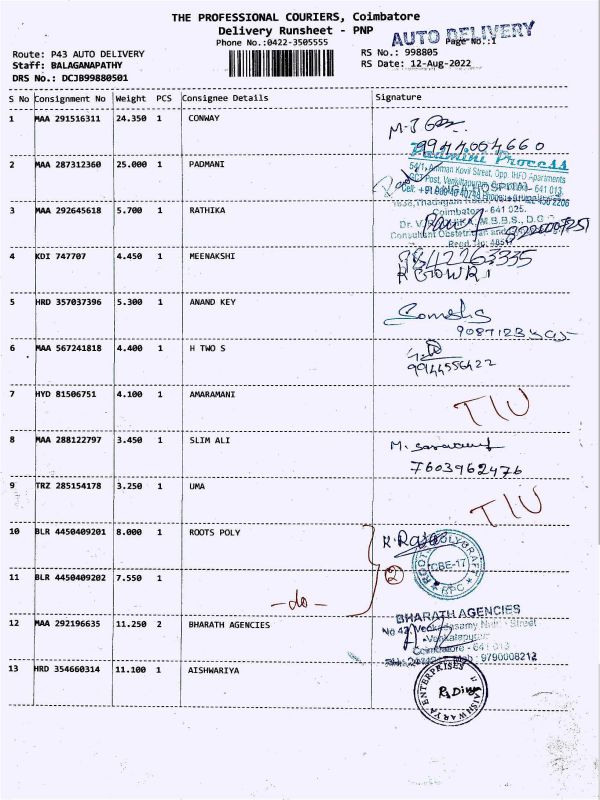 THE PROFESSIONAL COURIERS, Coimbatore
Delivery Runsheet - PNP
Phone No.:0422-3505555
AUTO DELIVERY
Page No.:1
Route: P43 AUTO DELIVERY
Staff: BALAGANAPATHY
DRS No.: DCJB99880501
RS No.: 998805
RS Date: 12-Aug-2022
S No Consignment No Weight PCS Consignee Details Signature
1 MAA 291516311 24.350 1 CONWAY
9944004660
2 MAA 287312360 25.000 1 PADMANI
Padmini Process
3 MAA 292645618 5.700 1 RATHIKA
Coimbatore - 641 025.
4 KDI 747707 4.450 1 MEENAKSHI
9842263335
R GOWRI
5 HRD 357037396 5.300 1 ANAND KEY
6 MAA 567241818 4.400 1 H TWO S
9944556422
7 HYD 81506751 4.100 1 AMARAMANI
TIU
8 MAA 288122797 3.450 1 SLIM ALI
7603962476
9 TRZ 285154178 3.250 1 UMA
TIU
10 BLR 4450409201 8.000 1 ROOTS POLY
K. Raja
CBE-17
2
11 BLR 4450409202 7.550 1
-do-
12 MAA 292196635 11.250 2 BHARATH AGENCIES
BHARATH AGENCIES
Coimbatore - 641 013
9790008212
13 HRD 354660314 11.100 1 AISHWARIYA
AISHWARYA ENTERPRISES